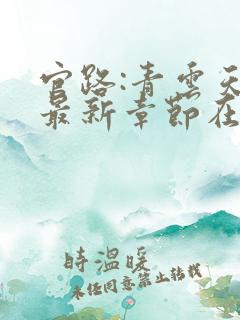 官路:青云天
最新章節在
時溫暖
未经同意禁止转载